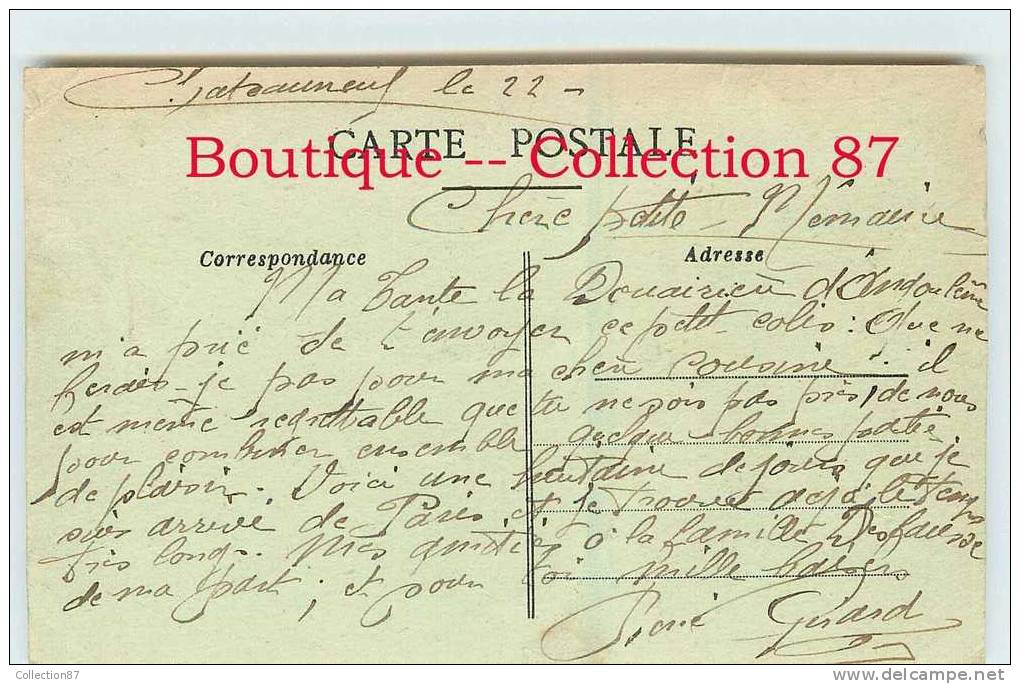 Chateauneuf le 22 -
CARTE POSTALE
Boutique -- Collection 87
Chère petite Némaurie
Correspondance
Adresse
Ma Tante la Douairière d'Angoulême
m'a prié de t'envoyer ce petit colis : Que ne
ferais-je pas pour ma chère cousine. il
est même regrettable que tu ne sois pas près de nous
pour combiner ensemble quelque bonnes partie
de plaisir. Voici une huitaine de jours que je
suis arrivé de Paris et je trouve déjà le temps
très long. Mes amitiés à la famille
de ma part ; et pour toi mille baisers
René Girard
Collection87
delcampe.net